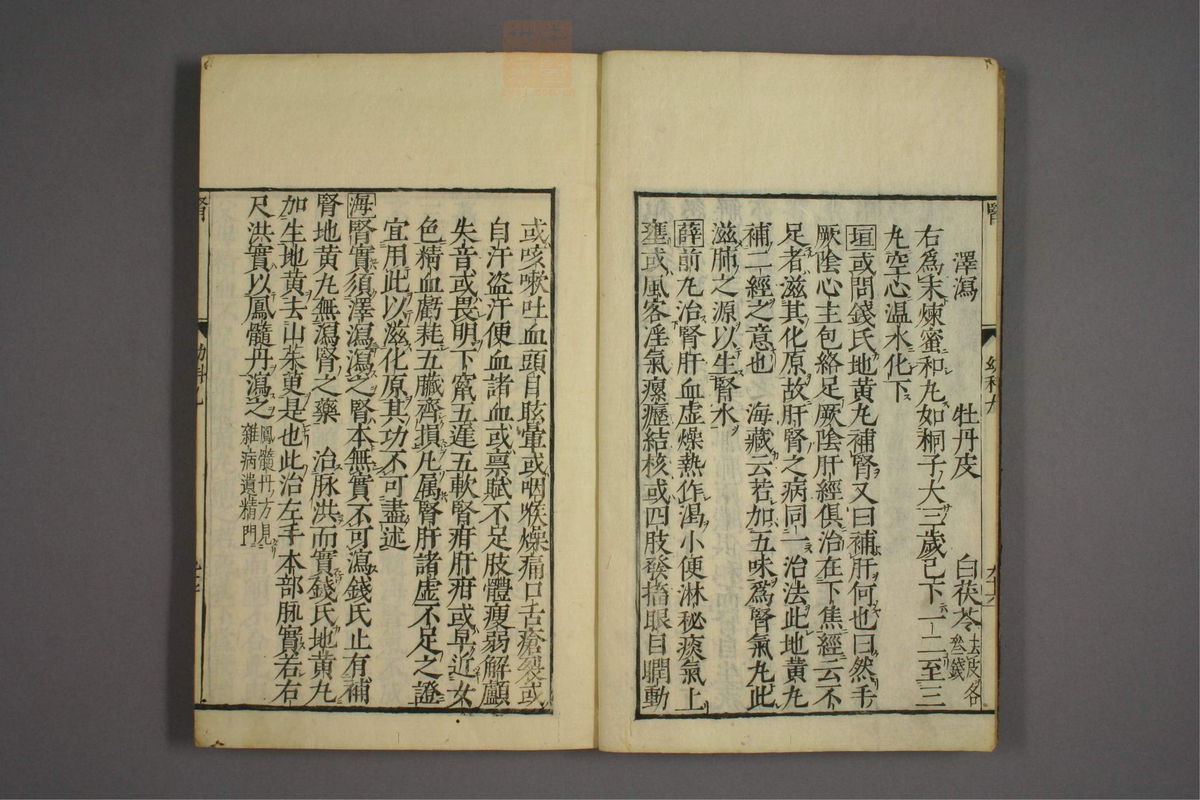 澤瀉　牡丹皮　白茯苓去皮各叁錢
右爲末煉蜜和丸如桐子大三歲已下一二至三
丸空心温水化下
垣或問錢氏地黄丸補腎又曰補肝何也曰然手
厥陰心主包絡足厥陰肝經俱治在下焦經云不
足者滋其化原故肝腎之病同一治法此地黄丸
補二經之意也　海藏云若加五味爲腎氣丸此
滋肺之源以生腎水
薛前丸治腎肝血虚燥熱作渴小便淋秘痰氣上
壅或風客淫氣瘰癧結核或四肢發搐眼目瞤動
或咳嗽吐血頭目眩暈或咽喉燥痛口舌瘡裂或
自汗盗汗便血諸血或禀賦不足肢體瘦弱解顱
失音或畏明下竄五遲五軟腎疳肝疳或早近女
色精血虧耗五臟齊損凡属腎肝諸虚不足之證
宜用此以滋化原其功不可盡述
海腎實須澤瀉瀉之腎本無實不可瀉錢氏止有補
腎地黄丸無瀉腎之藥　治脉洪而實錢氏地黄丸
加生地黄去山茱萸是也此治左手本部脉實若右
尺洪實以鳳髓丹瀉之鳳髓丹方見雜病遺精門
腎　幼科九
腎　幼科九